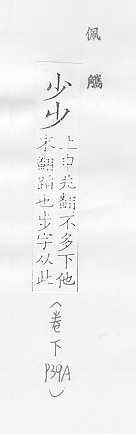 佩觿
少𣥂
上申兆翻不多下他
末翻蹈也步字从此
(卷下P39A)